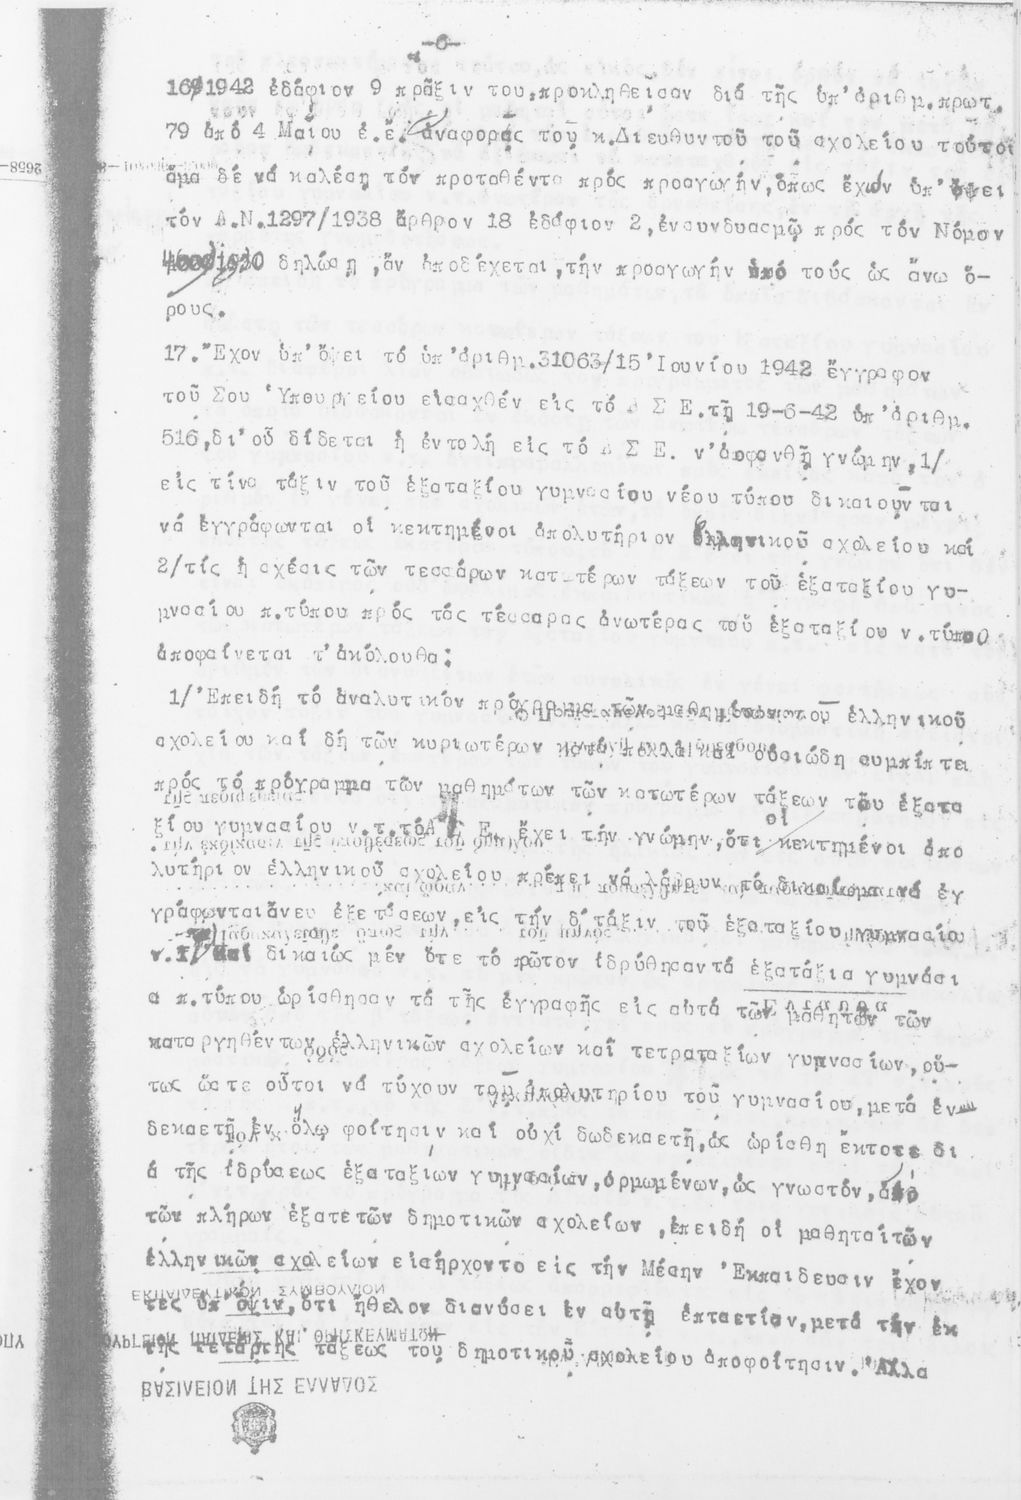 -6-
169/1942 ἐδάφιον 9 πρᾶξιν του, προκληθεῖσαν διά τῆς ὑπ'ἀριθμ.πρωτ.
79 ἀπό 4 Μαΐου ἐ.ἔ. ἀναφορᾶς τοῦ κ.Διευθυντοῦ τοῦ σχολείου τούτου
ἅμα δέ νά καλέσῃ τόν προταθέντα πρός προαγωγήν, ὅπως ἔχων ὑπ'ὄψει
τόν Α.Ν.1297/1938 ἄρθρον 18 ἐδάφιον 2, ἐνσυνδυασμῷ πρός τόν Νόμον
δηλώσῃ, ἄν ἀποδέχεται, τήν προαγωγήν ὑπό τούς ὡς ἄνω ὅ-
ρους.
17.Ἔχον ὑπ'ὄψει τό ὑπ'ἀριθμ.31063/15 Ἰουνίου 1942 ἔγγραφον
τοῦ Σου Ὑπουργείου εἰσαχθέν εἰς τό Α Σ Ε.τῇ 19-6-42 ὑπ'ἀριθμ.
516, δι'οὗ δίδεται ἡ ἐντολή εἰς τό Α Σ Ε. ν'ἀποφανθῇ γνώμην, 1/
εἰς τίνα τάξιν τοῦ ἑξαταξίου γυμνασίου νέου τύπου δικαιοῦνται
νά ἐγγράφωνται οἱ κεκτημένοι ἀπολυτήριον ἑλληνικοῦ σχολείου καί
2/τίς ἡ σχέσις τῶν τεσσάρων κατωτέρων τάξεων τοῦ ἑξαταξίου γυ-
μνασίου π.τύπου πρός τάς τέσσαρας ἀνωτέρας τοῦ ἑξαταξίου ν.τύπου
ἀποφαίνεται τ'ἀκόλουθα:
1/Ἐπειδή τό ἀναλυτικόν πρόγραμμα τῶν μαθημάτων τοῦ ἑλληνικοῦ
σχολείου καί δή τῶν κυριωτέρων κατά πολλά καί οὐσιώδη συμπίπτει
πρός τό πρόγραμμα τῶν μαθημάτων τῶν κατωτέρων τάξεων τοῦ ἑξατα
ξίου γυμνασίου ν.τ.τό Α Σ Ε. ἔχει τήν γνώμην, ὅτι οἱ κεκτημένοι ἀπο
λυτήριον ἑλληνικοῦ σχολείου πρέπει νά λάβουν τό δικαίωμα νά ἐγ
γράφωνται ἄνευ ἐξετάσεων, εἰς τήν δ'τάξιν τοῦ ἑξαταξίου γυμνασίου
ν.τ. καί δικαίως μέν ὅτε τό πρῶτον ἱδρύθησαν τά ἑξατάξια γυμνάσι
α π.τύπου ὡρίσθησαν τά τῆς ἐγγραφῆς εἰς αὐτά τῶν μαθητῶν τῶν
καταργηθέντων ἑλληνικῶν σχολείων καί τετραταξίων γυμνασίων, οὕ-
τως ὥστε οὗτοι νά τύχουν τοῦ ἀπολυτηρίου τοῦ γυμνασίου, μετά ἑν
δεκαετῆ ἐν ὅλῳ φοίτησιν καί οὐχί δωδεκαετῆ, ὡς ὡρίσθη ἔκτοτε δι
ά τῆς ἱδρύσεως ἑξαταξίων γυμνασίων, ὁρμωμένων, ὡς γνωστόν, ἀπό
τῶν πλήρων ἑξατετῶν δημοτικῶν σχολείων, ἐπειδή οἱ μαθηταί τῶν
ἑλληνικῶν σχολείων εἰσήρχοντο εἰς τήν Μέσην Ἐκπαίδευσιν ἔχον
τες ὑπ'ὄψιν, ὅτι ἤθελον διανύσει ἐν αὐτῇ ἑπταετίαν, μετά τήν ἐκ
τῆς τετάρτης τάξεως τοῦ δημοτικοῦ σχολείου ἀποφοίτησιν. Ἀλλά
ΒΑΣΙΛΕΙΟΝ ΤΗΣ ΕΛΛΑΔΟΣ